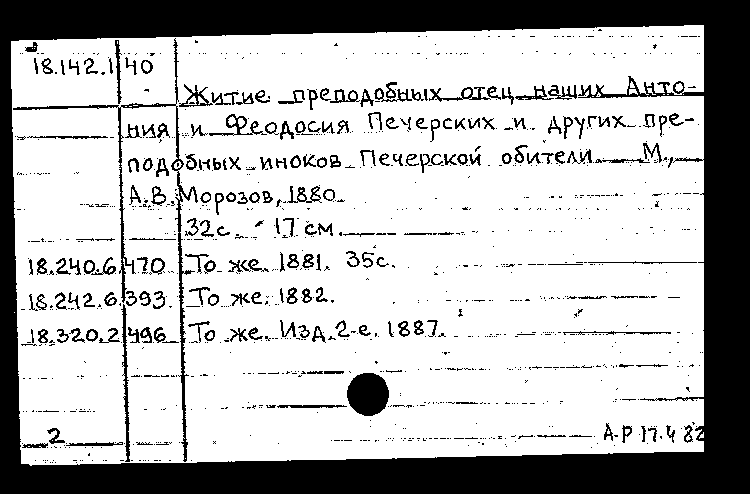 18.142.1 40
Житие преподобных отец наших Анто-
ния и Феодосия Печерских и других пре-
подобных иноков Печерской обители М.,
А.В.Морозов, 1880.
32с. 17 см.
18.240.6 470 То же. 1881. 35с.
18.242.6 393 То же. 1882.
18.320.2 496 То же. Изд. 2-е. 1887.
2 А-Р 17.4 82